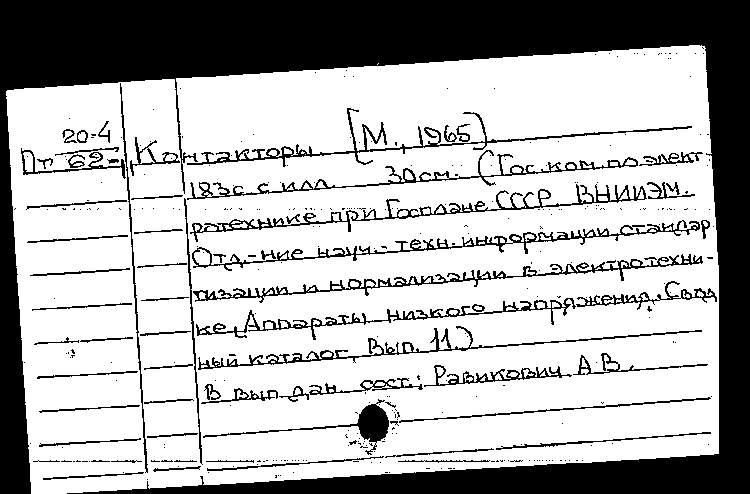 20-4
Пт 62-1
Контакторы. [М., 1965].
183с с илл. 30см. (Гос.ком.по элект-
ротехнике при Госплане СССР. ВНИИЭМ.
Отд-ние науч.-техн.информации, стандар
тизации и нормализации в электротехни-
ке. Аппараты низкого напряжения. Свод
ный каталог, Вып. 11.)
В вып дан. сост.: Равикович А.В.